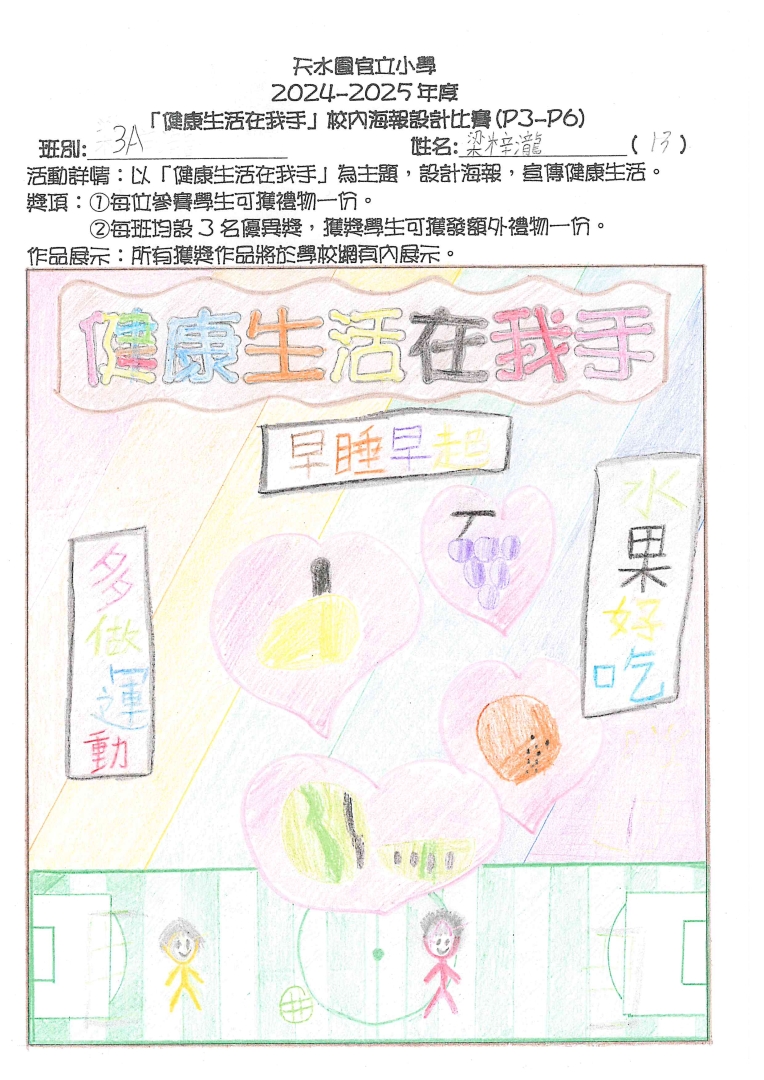 天水圍官立小學
2024-2025年度
「健康生活在我手」校內海報設計比賽(P3-P6)
班別: 3A 姓名: 梁梓瀧 (13)
活動詳情：以「健康生活在我手」為主題，設計海報，宣傳健康生活。
獎項：①每位參賽學生可獲禮物一份。
②每班均設3名優異獎，獲獎學生可獲發額外禮物一份。
作品展示：所有獲獎作品將於學校網頁內展示。
健康生活在我手
早睡早起
水果好吃
多做運動